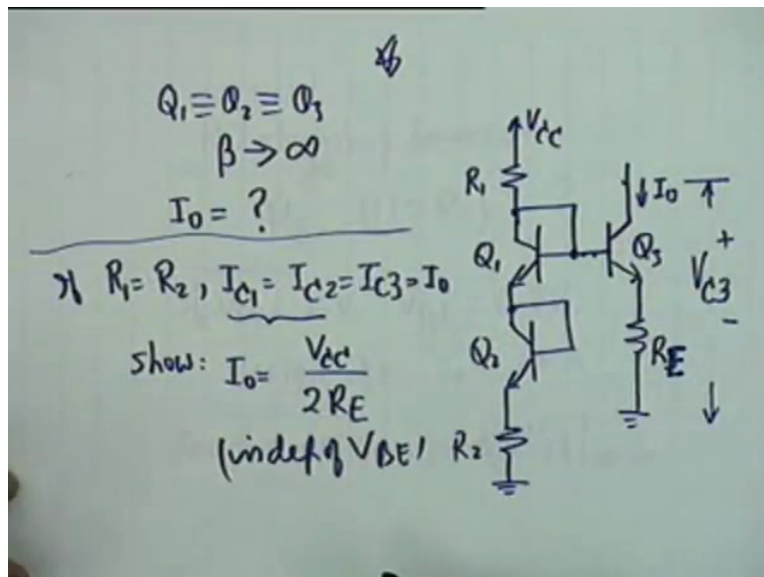 Q₁≡Q₂≡Q₃
β→∞
I₀= ?
If R₁=R₂, I_C1=I_C2=I_C3=I₀
show: I₀= V_CC / 2R_E
(indep of V_BE)
V_CC
R₁
I₀
Q₁
Q₃
+
V_C3
-
Q₂
R_E
R₂